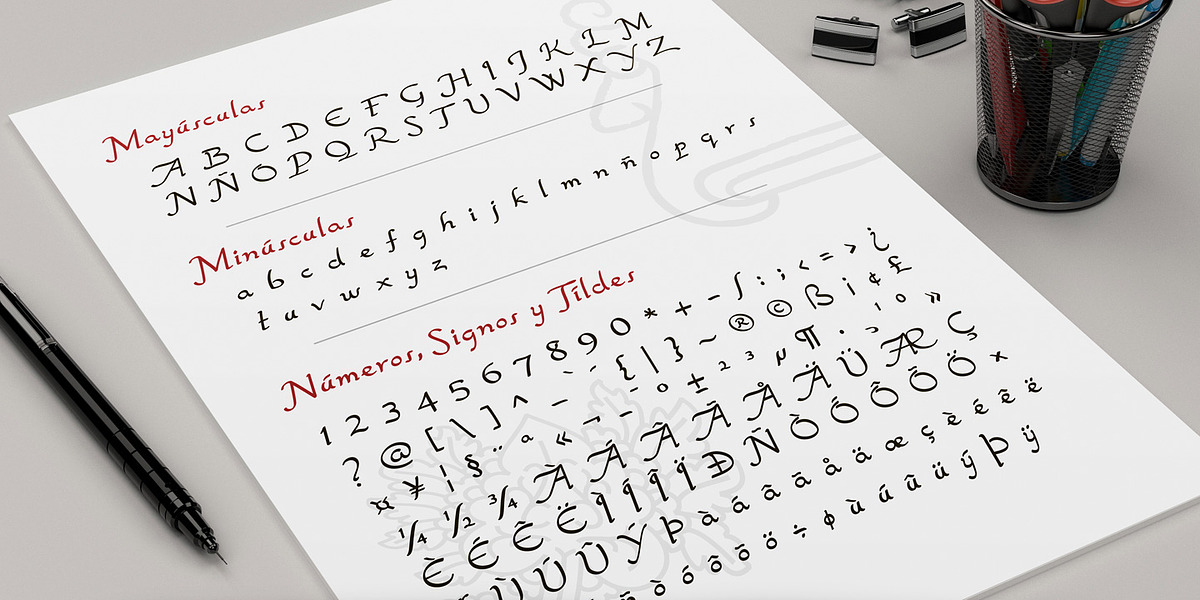 Mayúsculas
A B C D E F G H I J K L M
N Ñ O P Q R S T U V W X Y Z
Minúsculas
a b c d e f g h i j k l m n ñ o p q r s
t u v w x y z
Números, Signos y Tildes
1 2 3 4 5 6 7 8 9 0 * + - / : ; < = > ¿
? @ [ \ ] ^ _ ` ´ { | } ~ ® © ß ¡ ¢ £
¤ ¥ ¦ § ¨ ª « ¬ - ¯ º ± ² ³ µ ¶ · ¸ ¹ º »
¼ ½ ¾ À Á Â Ã Å Ä Ü Æ Ç
È É Ê Ë Ì Í Î Ï Ð Ñ Ò Ó Ô Õ Ö ×
Ù Ú Û Ý Þ à á â ã å ä æ ç è é ê ë
ñ ò ó ô õ ö ÷ ø ù ú û ü ý þ ÿ